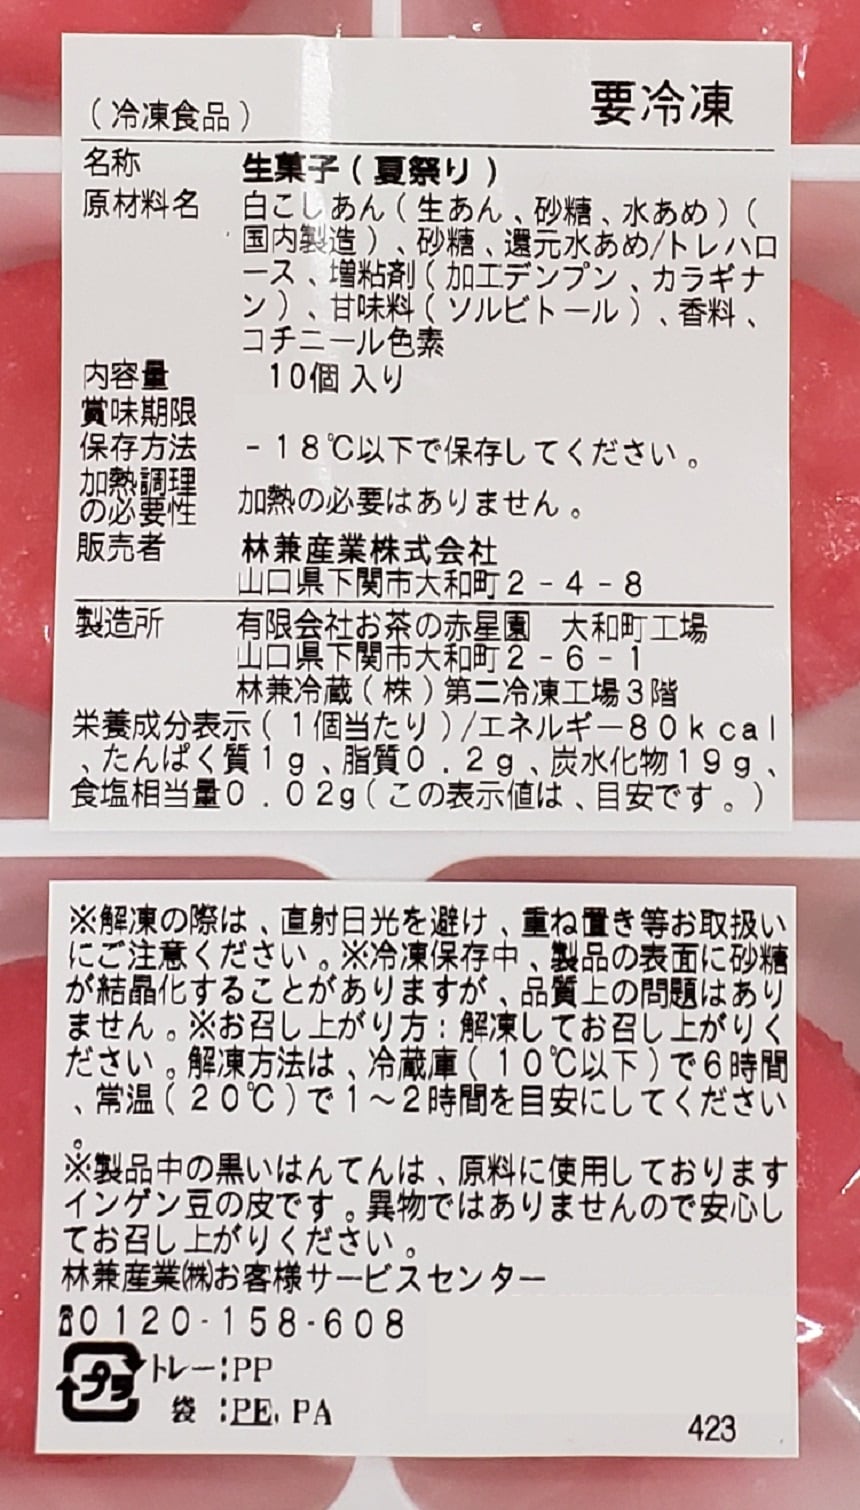 （冷凍食品）
要冷凍
名称 生菓子（夏祭り）
原材料名 白こしあん（生あん、砂糖、水あめ）（
国内製造）、砂糖、還元水あめ/トレハロ
ース、増粘剤（加工デンプン、カラギナ
ン）、甘味料（ソルビトール）、香料、
コチニール色素
内容量 10個入り
賞味期限
保存方法 －18℃以下で保存してください。
加熱調理
の必要性 加熱の必要はありません。
販売者 林兼産業株式会社
山口県下関市大和町2－4－8
製造所 有限会社お茶の赤星園 大和町工場
山口県下関市大和町2－6－1
林兼冷蔵（株）第二冷凍工場3階
栄養成分表示（1個当たり）/エネルギー80kcal
、たんぱく質1g、脂質0.2g、炭水化物19g、
食塩相当量0.02g（この表示値は、目安です。）
※解凍の際は、直射日光を避け、重ね置き等お取扱い
にご注意ください。※冷凍保存中、製品の表面に砂糖
が結晶化することがありますが、品質上の問題はあり
ません。※お召し上がり方：解凍してお召し上がりく
ださい。解凍方法は、冷蔵庫（10℃以下）で6時間
、常温（20℃）で1～2時間を目安にしてください
。
※製品中の黒いはんてんは、原料に使用しております
インゲン豆の皮です。異物ではありませんので安心し
てお召し上がりください。
林兼産業㈱お客様サービスセンター
☎0120-158-608
プラ トレー:PP
袋:PE, PA
423